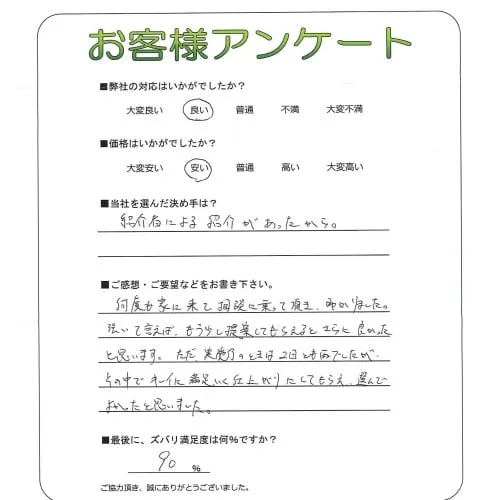 お客様アンケート
■弊社の対応はいかがでしたか？
大変良い 良い 普通 不満 大変不満
■価格はいかがでしたか？
大変安い 安い 普通 高い 大変高い
■当社を選んだ決め手は？
紹介者による紹介があったから。
■ご感想・ご要望などをお書き下さい。
何度も家に来て相談に乗って頂き、助かりました。
強いて言えば、もう少し提案してもらえるとさらに良かった
と思います。ただ、実施のときは2日とも雨でしたが、
その中でキレイに満足いく仕上がりにしてもらえ、選んで
よかったと思いました。
■最後に、ズバリ満足度は何%ですか？
90 %
ご協力頂き、誠にありがとうございました。